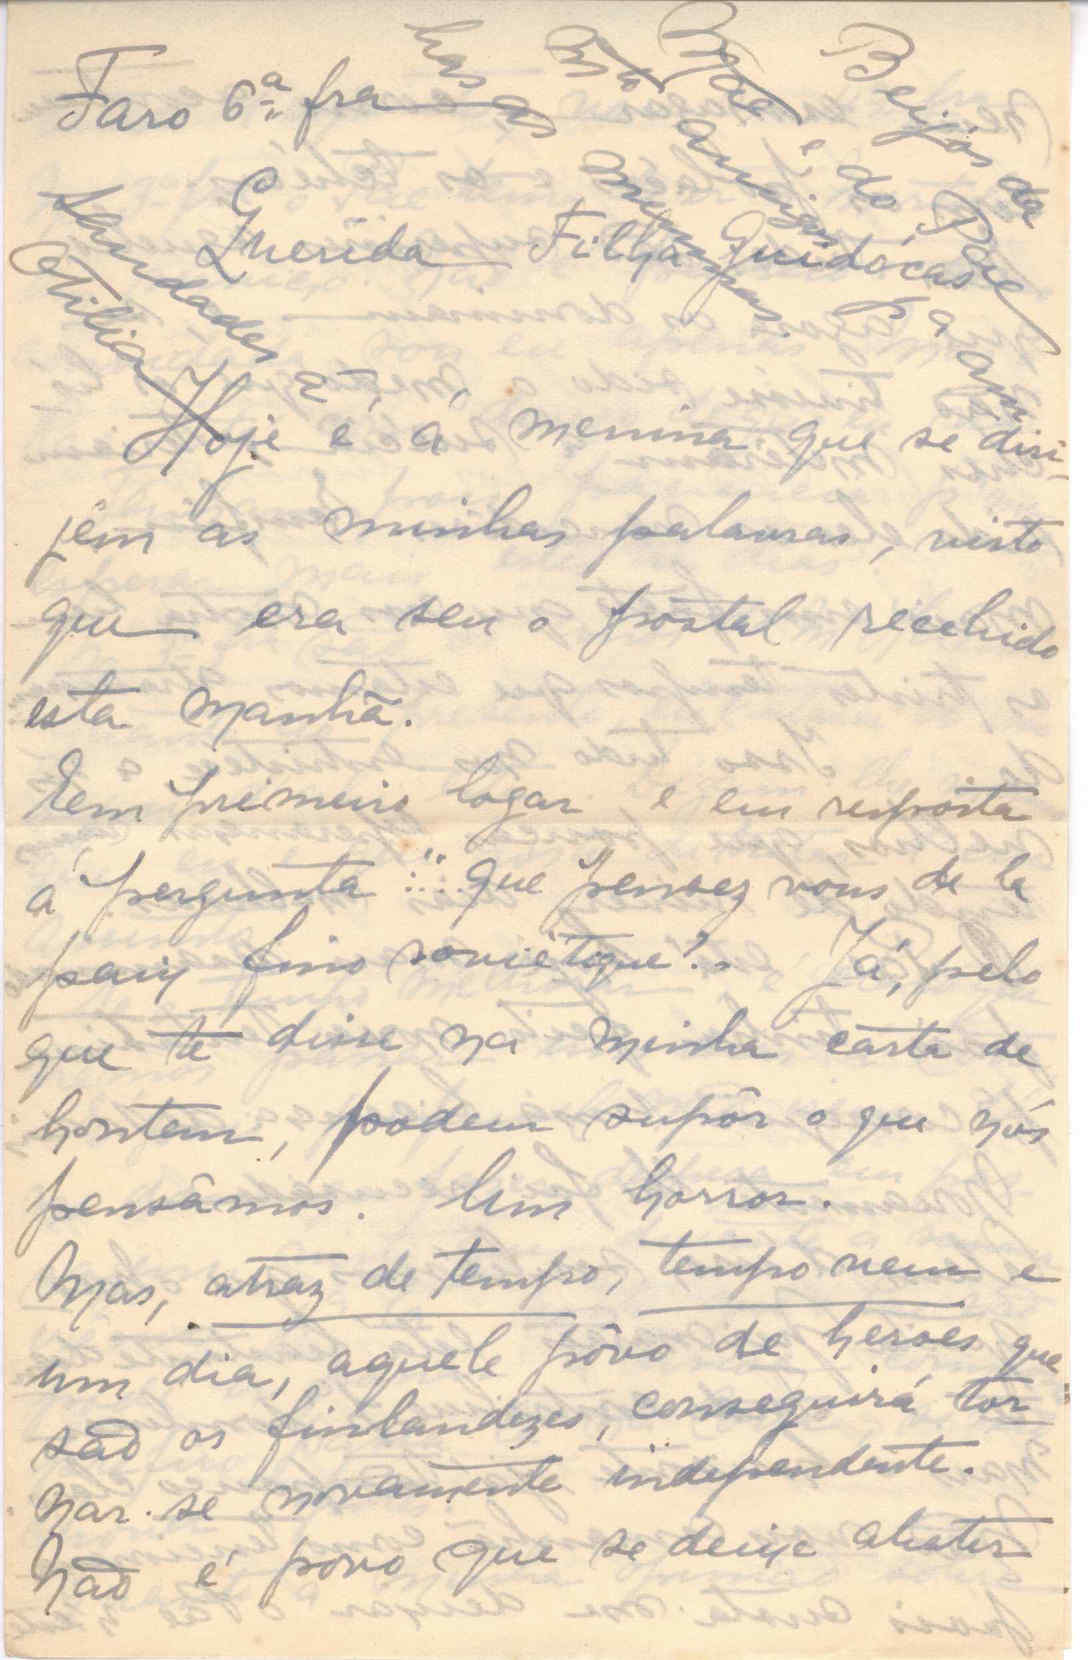 Faro 6ª fra
Querida Filha Guidócas
Hoje é á menina que se diri-
jêm as minhas palavras, visto
que era seu o postal recebido
esta manhã.
Em primeiro logar e em resposta
á pergunta "... que pensez vous de la
paix fino soviétique"? Já, pelo
que te disse na minha carta de
hontem, podem supôr o que nós
pensâmos. Um horror.
Mas, atraz de tempo, tempo vem e
um dia, aquele pôvo de heroes que
são os finlandezes, conseguirá tor-
nar-se novamente independente.
Não é povo que se deixe abater
Beijos da
Mãe e do Pae
Bjs amigos pª am
has as meninas.
Saudades á
Otilia